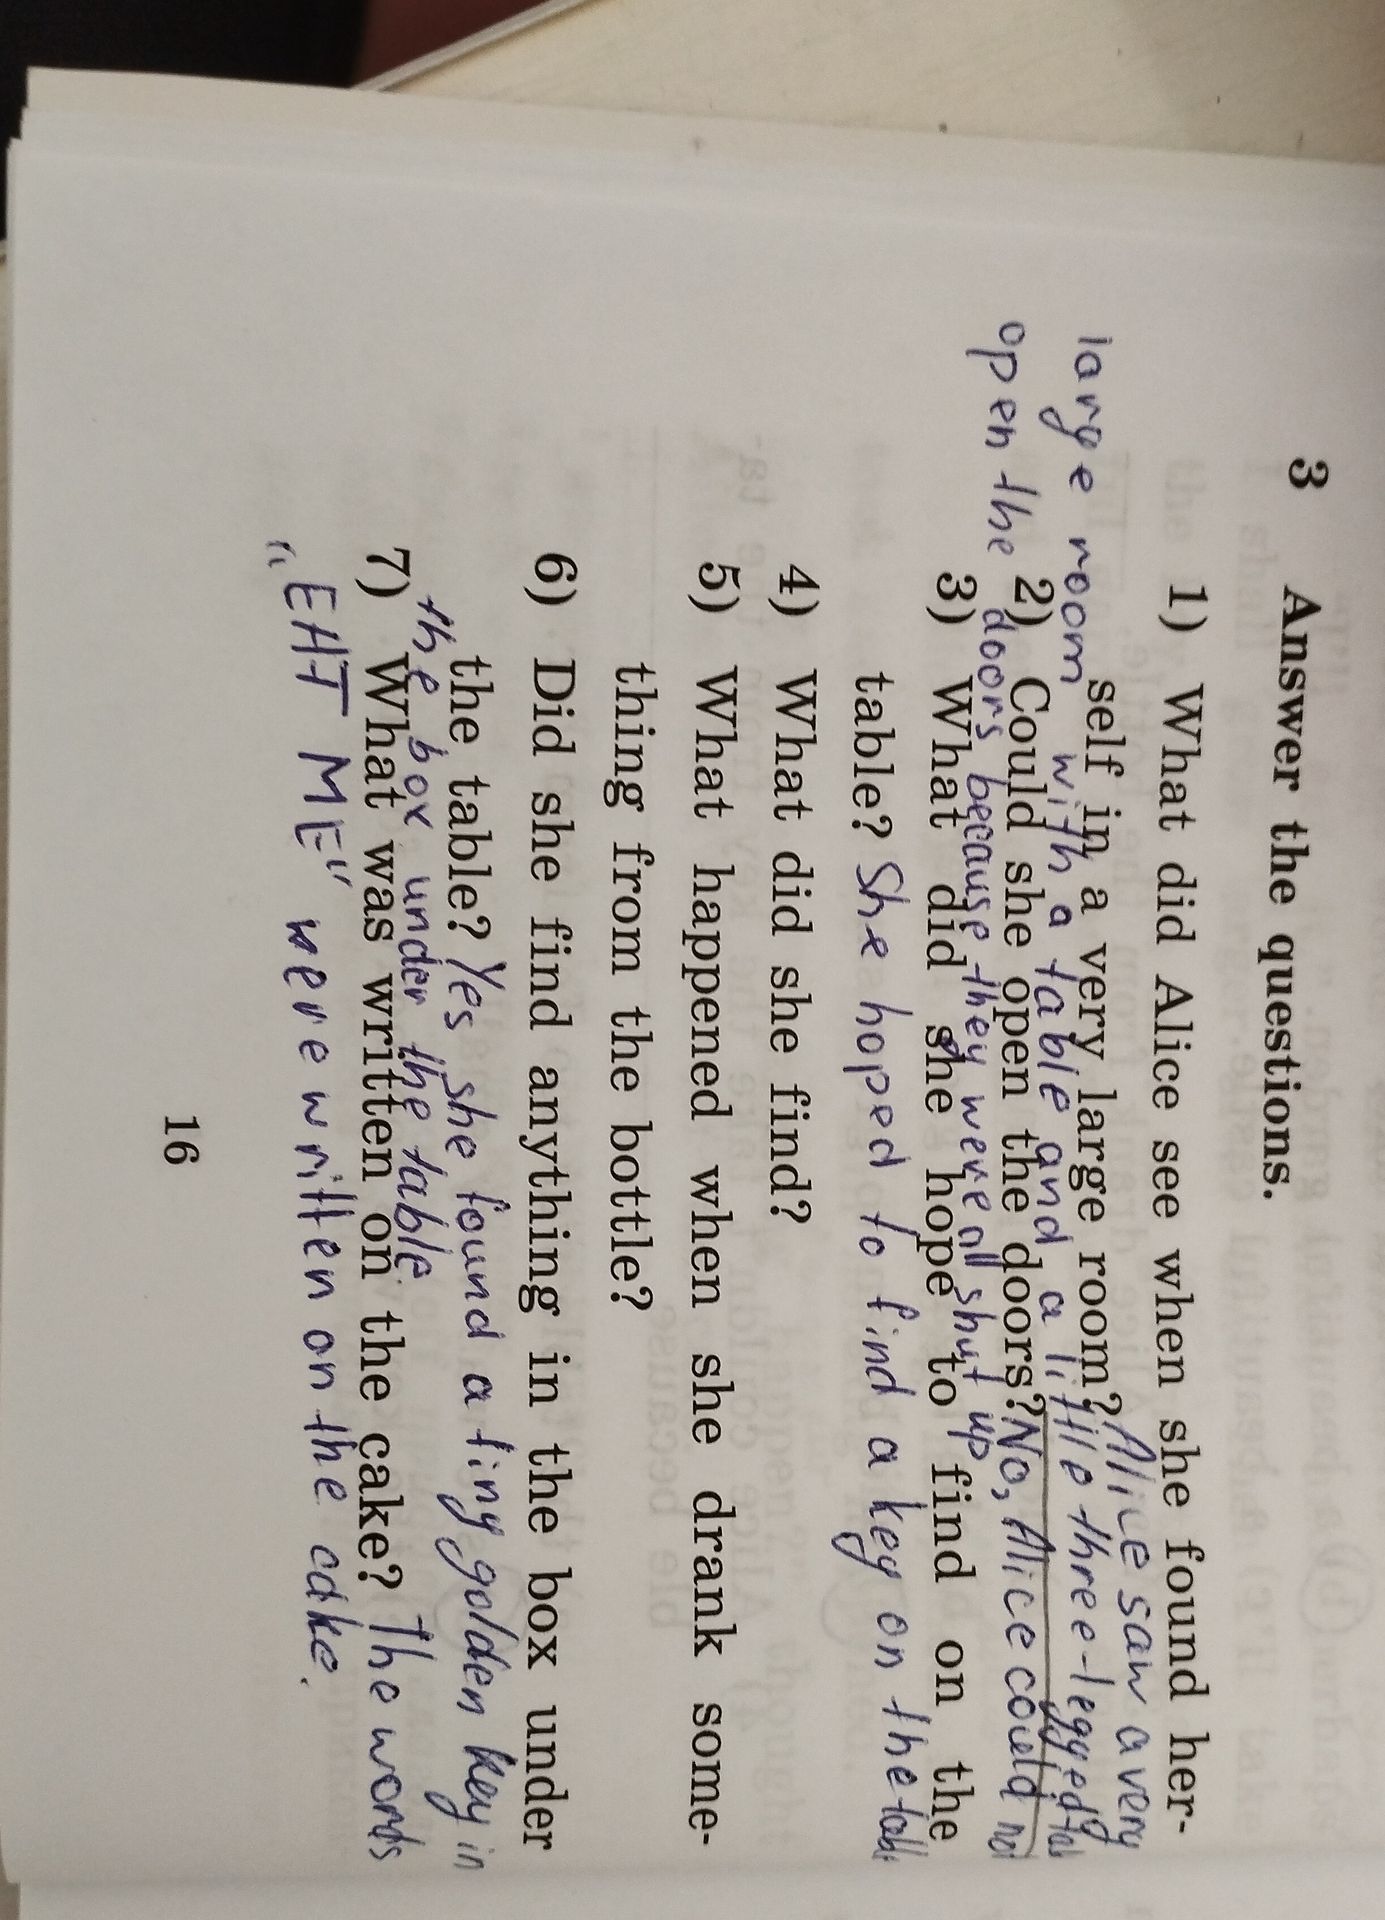 3 Answer the questions.
1) What did Alice see when she found her-
self in a very large room? Alice saw a very
large room with a table and a little three-legged
2) Could she open the doors? No, Alice could not
open the doors because they were all shut up
3) What did she hope to find on the
table? She hoped to find a key on the table
4) What did she find?
5) What happened when she drank some-
thing from the bottle?
6) Did she find anything in the box under
the table? Yes she found a tiny golden key in
the box under the table
7) What was written on the cake? The words
"EHT ME" were written on the cake.
16